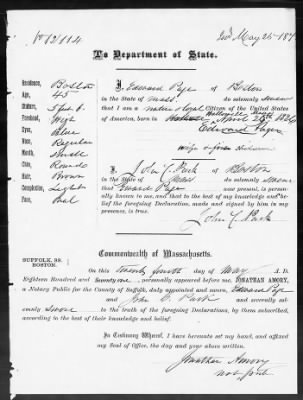 No 12114
May 25 187
To Department of State.
Residence, Boston
Age, 45
Stature, 5 feet 6
Forehead, High
Eyes, Blue
Nose, Regular
Mouth, Small
Chin, Round
Hair, Brown
Complexion, Light
Face, Oval
I, Edward Page of Boston
in the State of Mass. do solemnly swear
that I am a native & loyal Citizen of the United States
of America, born in Hallowell Maine April 25th 1826
Edward Page
wife &
I, John C. Park of Boston
in the State of Mass do solemnly swear
that Edward Page now present, is personally
known to me, and that to the best of my knowledge and belief
the foregoing Declaration, made and signed by him in my
presence, is true.
John C. Park
Commonwealth of Massachusetts.
SUFFOLK, SS.
BOSTON.
On this twenty fourth day of May A. D.
Eighteen Hundred and seventy one, personally appeared before me, JONATHAN AMORY,
a Notary Public for the County of Suffolk, duly appointed and sworn, Edward Page
and John C. Park and severally
solemnly swore to the truth of the foregoing Declarations, by them subscribed,
according to the best of their knowledge and belief.
In Testimony Whereof, I have hereunto set my hand, and affixed
my Seal of Office, the day and year above written.
Jonathan Amory